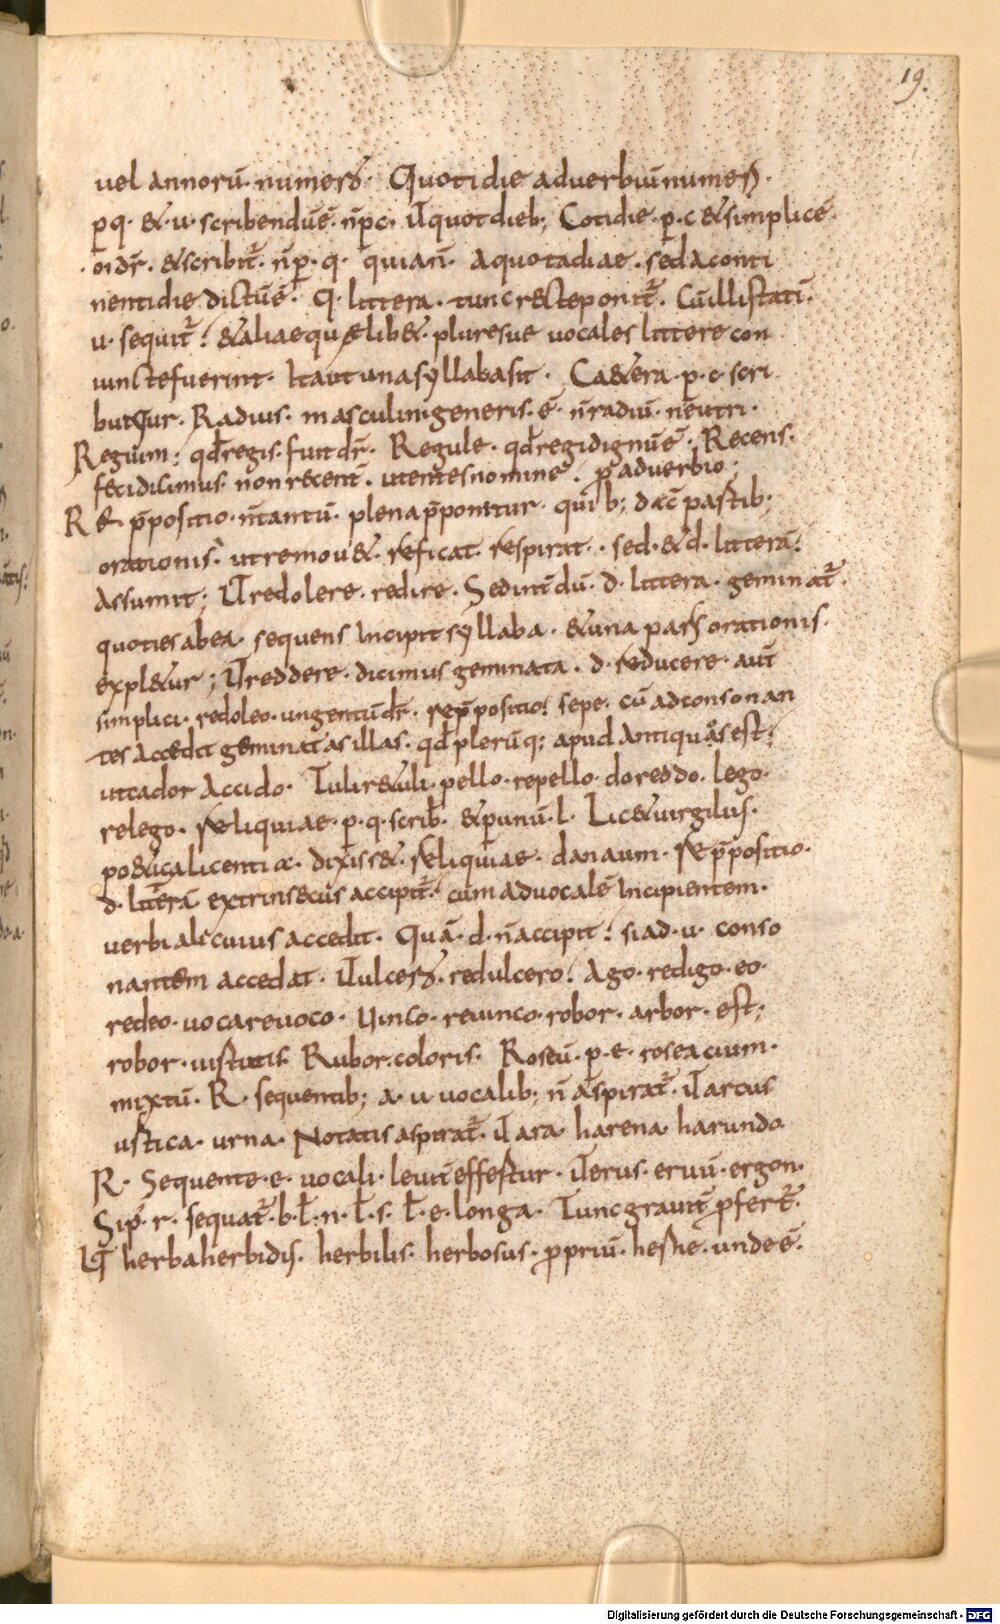 19.
uel annorū· numerꝰ· Quotidie aduerbiū numeri·
p̱q· & u· scribendū ē· n̄ p c· ut quot dieb; Cotidie· p· c & simplicē·
· oī dr̄· & scribit̄· n̄ p· q· quia n̄· a quota diae· sed a conti
nenti die dictū ē· Q· littera· tunc recte ponit̄· Cū illi statī·
u· sequit̄· & aliae quęlib& pluresue uocales littere con
iuncte fuerint· Ita ut una syllaba sit· Cetera p· c· scri
buntur· Radius· masculini generis· ē· n̄ radiū· neutri·
Regium; qd̄ regis· fuit dr̄· Regule· qd̄ regi dignū ē· Recens·
fecidisimus non recent· utentes nomine· p aduerbio;
R Re p̄positio· n̄ tantū· plena p̄ponitur· quib; dā c̄ partib;
orationis· ut remou&· reficat· respirat· sed· & d· litterā
assumit; Ut redolere· redire· Sed int̄dū· d· littera· geminat̄·
quoties ab ea· sequens incipit syllaba· & una pars orationis·
expl&ur; Ut reddere· dicimus geminata· d· reducere· aut̄
simplici· redoleo· ungentū dr̄· re p̄positio sepe· cū ad consonan
tes accedit geminat as illas· qd̄ plerūq; apud antiquos est;
ut cador accido· Tuli r&uli· pello· repello· do reddo· lego·
relego· Reliquiae· p· q· scrib̄· & p unū· l· Lic& uirgilius·
po&ica licentiæ· dixiss& reliquiae· danaum· Re p̄positio·
d· litterā extrinsecus accipit̄· cum ad uocalē incipientem·
uerbi alicuius accedit· Quā· d· n̄ accipit si ad· u· conso
nantem accedat· Ut ulcerꝰ· redulcero· ago· redigo· eo·
redeo· uoca reuoco· Uinco· reuinco· robor· arbor· est;
robor· uirtutis· Rubor· coloris· Roseū· p· e· rosea cium·
mixtū· R· sequentib; a· u uocalib; n̄ aspirat̄· Ut arcus
ustica· urna· Notatis aspirat̄· Ut ara· harena· harundo
R· Sequente· e· uocali· leuit̄ effertur· Ut erus· eruū· ergon·
Si p̄· r· sequat̄· b· ł· n· ł· s· ł· e· longa· Tunc grauit̄ p̄fert̄·
Ut herba herbidis· herbilis· herbosus· propriū· herne· unde ē·
Digitalisierung gefördert durch die Deutsche Forschungsgemeinschaft - DFG